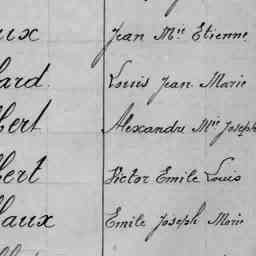 ux Jean Mie Etienne
ard Louis Jean Marie
bert Alexandre Mie Joseph
bert Victor Emile Louis
aux Emile Joseph Marie